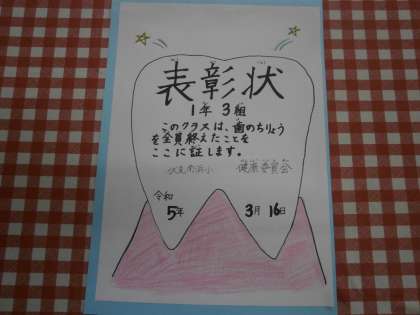 表彰状
1年 3組
このクラスは、歯のちりょう
を全員終えたことを
ここに証します。
伏見南浜小 健康委員会
令和
5年 3月 16日